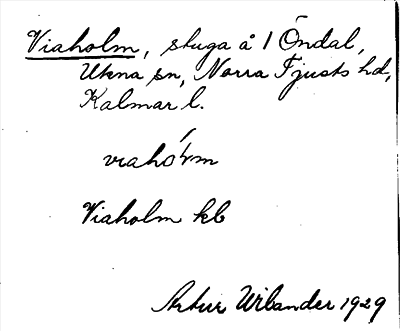 Viaholm, stuga å 1 Öndal,
Ukna sn, Norra Tjusts hd,
Kalmar l.
viahólm
Viaholm kb
Artur Wilander 1929